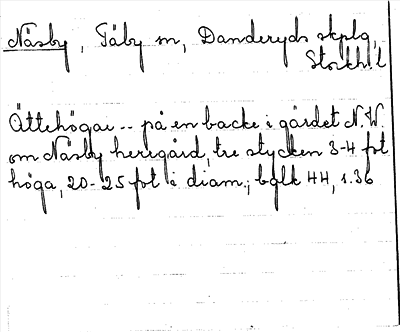 Näsby, Täby sn, Danderyds skplg,
Stockh.l
Ättehögar -- på en backe i gärdet N.W.
om Näsby herregård, tre stycken 3-4 fot
höga, 20-25 fot i diam.; bglk 44, s.36